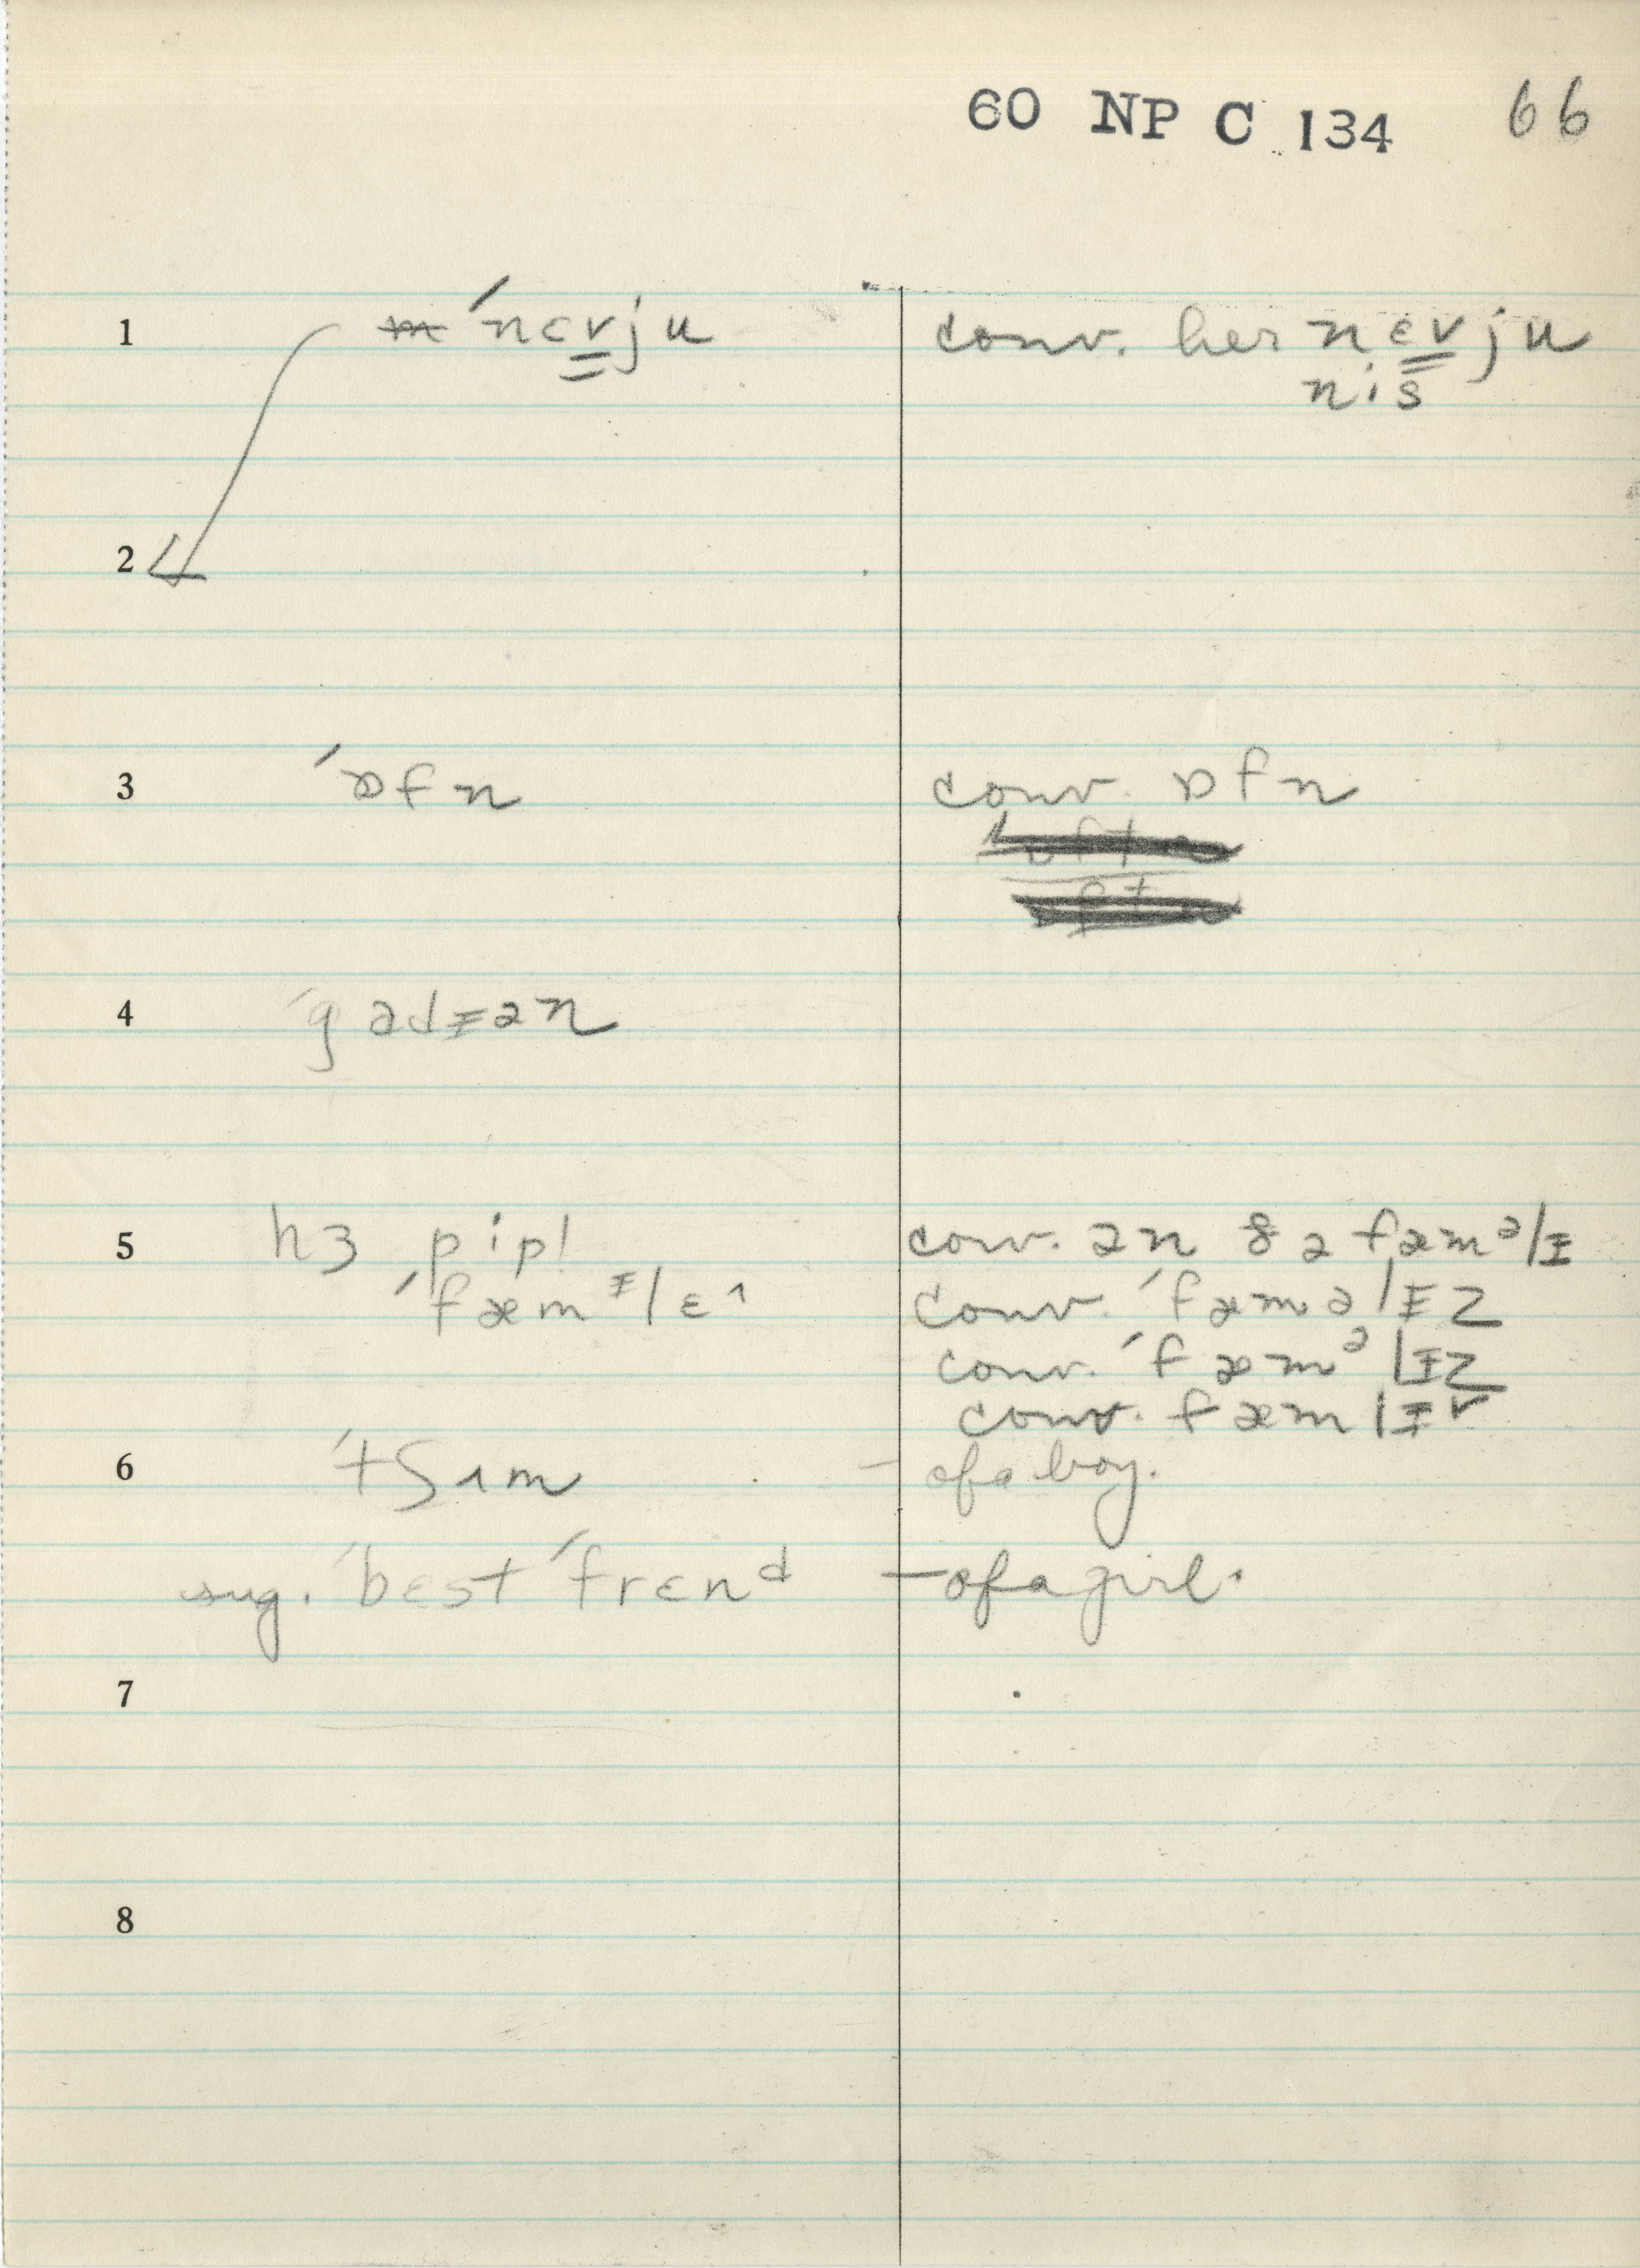 60 NP C 134 66
1 ˊnɛvju conv. her nɛvju
nis
2
3 ˊɒfn conv. ɒfn
4 ˊgadɪən
5 hɜ pipl conv. ən ðə fæmᵊlɪ
ˊfæmᶦlɛ^ conv. ˊfæməlɪz
conv. ˊfæmᵊlɪz
conv. fæmlɪ˅
6 ˊtʃʌm – of a boy.
sug. ˊbɛst ˊfrɛnᵈ – of a girl.
7
8